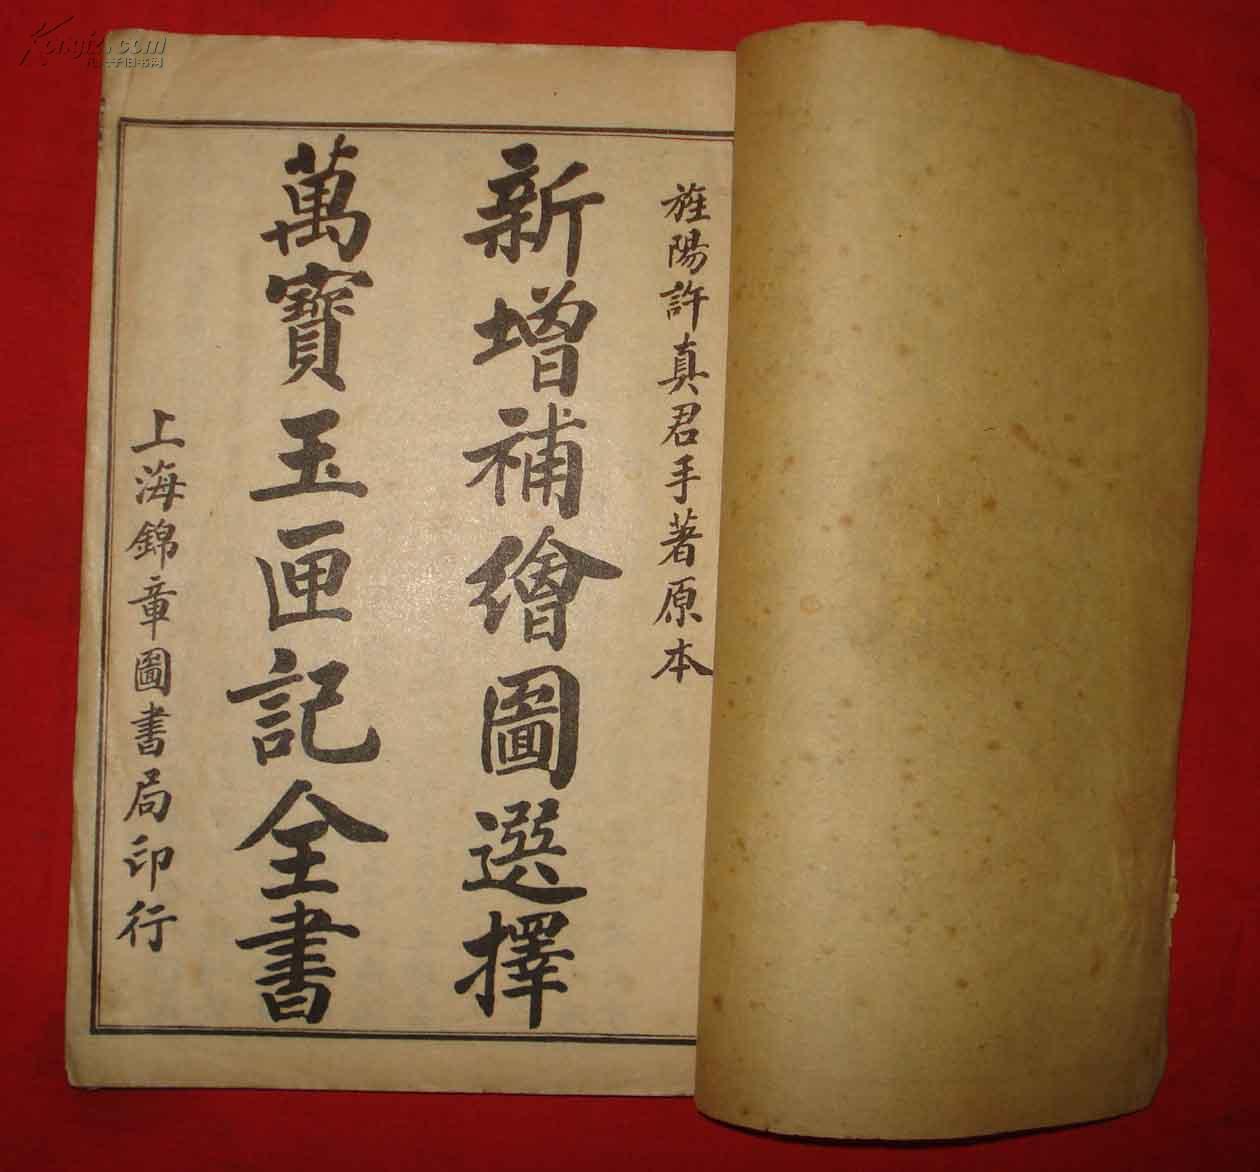 旌陽許真君手著原本
新增補繪圖選擇
萬寶玉匣記全書
上海錦章圖書局印行
Kongfz.com
孔夫子旧书网